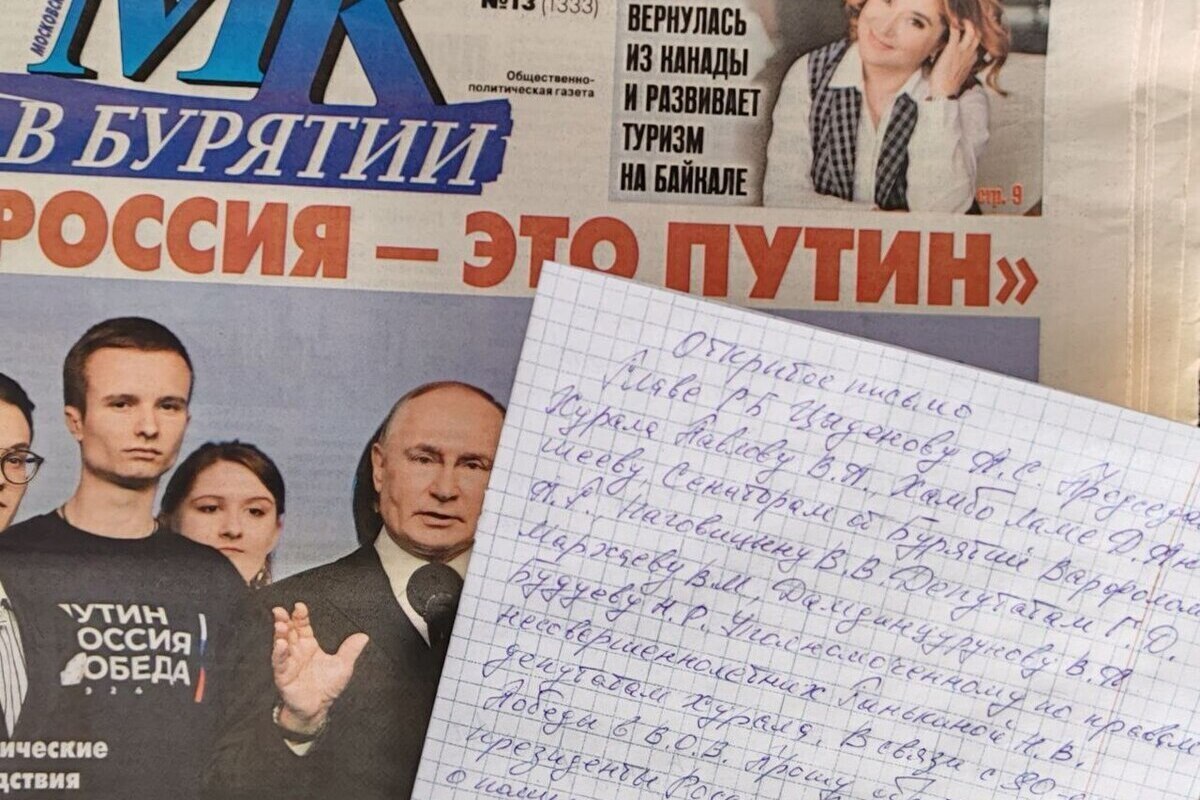 МОСКОВС
МК
№13 (1333)
Общественно-
политическая газета
В БУРЯТИИ
ВЕРНУЛАСЬ
ИЗ КАНАДЫ
И РАЗВИВАЕТ
ТУРИЗМ
НА БАЙКАЛЕ
стр. 9
РОССИЯ – ЭТО ПУТИН»
УТИН
ОССИЯ
ОБЕДА
ические
дствия
Открытое письмо
Главе РБ Цыденову А.С. Председа
Хурала Павлову В.А., Хамбо Ламе Д. Аю
шееву, Сенаторам от Бурятии Варфолом
А.Г., Наговицыну В.В. Депутатам Г.Д.
Мархаеву В.М, Дамдинцурунову В.А
Будуеву Н.Р., Уполномоченному по правам
несовершеннолетних Ганькиной Н.В.
депутатам хурала. В связи с 80-
Победы в В.О.В. Прошу
президенты Рос